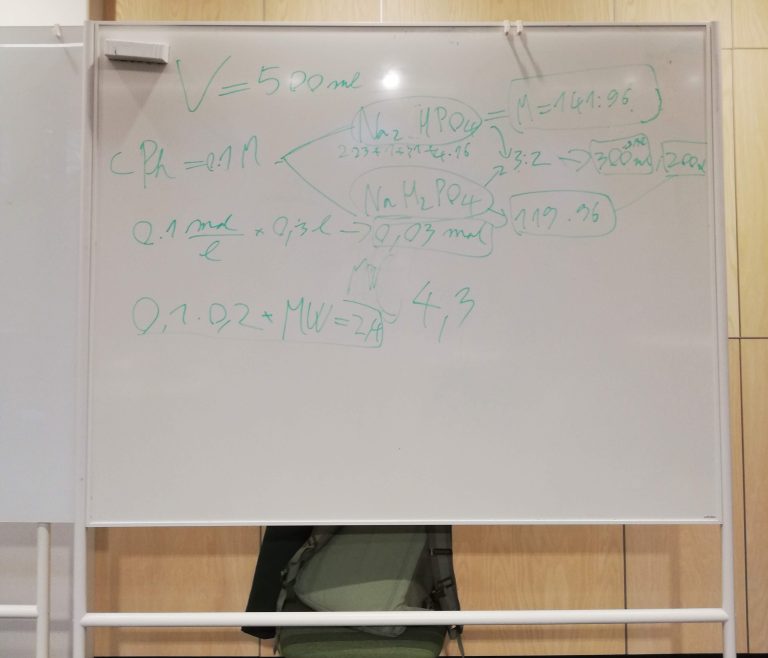 V = 500 ml
Na2 HPO4 = M = 141.96
2·23+1+31+4·16
C Ph = 0.1 M
3:2 → 300 ml, 200ml
NaH2PO4
119.96
0.1 mol/l * 0,3 l → 0,03 mol
MW
0,1 · 0,2 * MW = 2,4
4,3